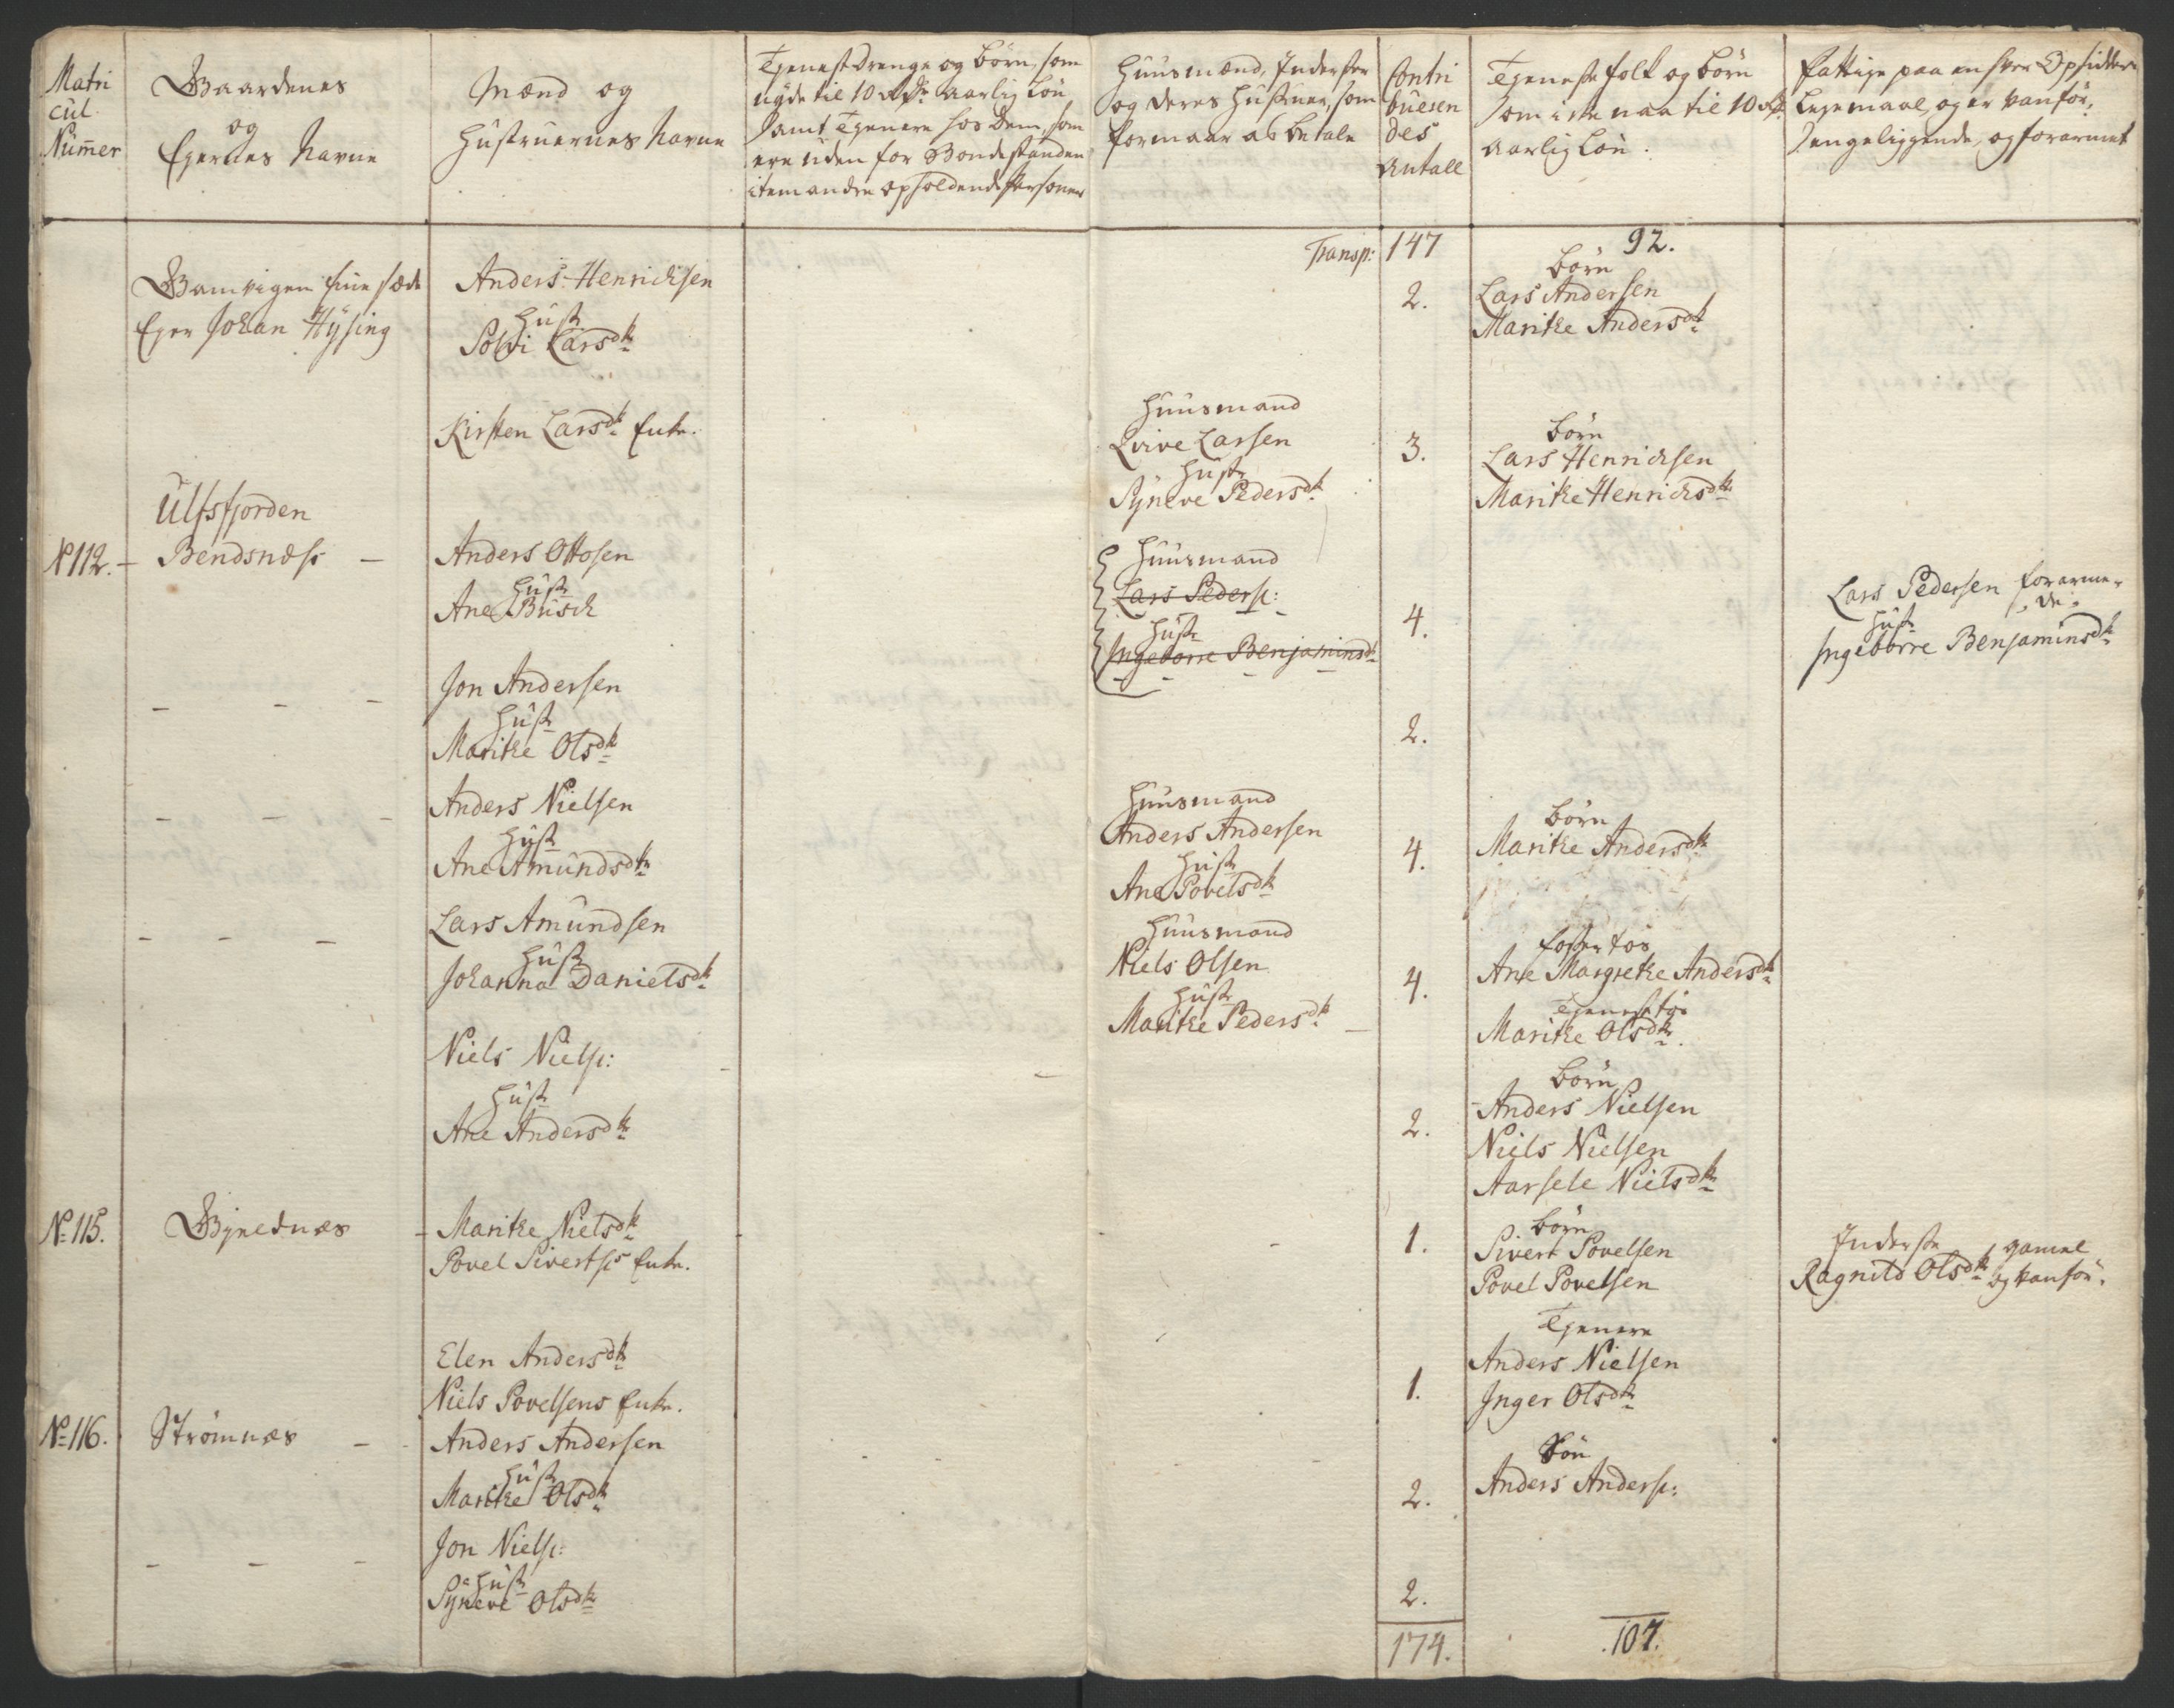 Matri
cul
Num̄er
Gaardenes
og
Ejernes Navne
Mænd og
Hustruernes Navne
Tjenest Drenge og Børn, som
nyde til 10 Rdr aarlig Løn
samt Tjenere hos dem, som
ere uden for Bondestanden
item andre opholdende Personer
Huusmænd, Inderster
og deres Hustruer, som
formaar at betale
Contri
bueren
des
Antall
Tjeneste folk og Børn
som icke naa til 10 rd
aarlig Løn.
Fattige paa en hver Opsidders
Leyemaal, og er vanför,
Sengeliggende, og forarmet
Transp: 147
92.
Eger Johan Hÿsing
Anders Henrichsen
Hust
Solvi Larsdt
2.
Børn
Lars Andersen
Maritte Andersdt
Kirsten Larsdt Enke.
Huusmand
Lvive Larsen
Hust
Sÿneve Pedersdt
3.
Børn
Lars Henrichsen
Maritte Henrichsdt
Ulfsfjorden
No 112. - Bendsnæss -
Anders Ottosen
Hust
Ane Busch
Huusmand
Lars Peders:
Hust
Ingeborre Benjaminsdt
4.
Lars Pedersen forarme-
de
Hust
Ingeborre Benjaminsdt
- - -
Jon Andersen
Hust
Maritte Olsdt
2.
- - -
Anders Nielsen
Hust
Ane Amundsdt
Huusmand
Anders Andersen
Hust
Ane Povelsdt
4.
Børn
Maritte Andersdt
- - -
Lars Amundsen
Hust
Johanna Danielsdt
Huusmand
Niels Olsen
Hust
Maritte Pedersdt -
4.
Foster tøs
Ane Margrethe Andersdt
Tjeneste tøs
Maritte Olsdt.
Niels Niels:
Hust
Ane Andersdt
2.
Børn
Anders Nielsen
Niels Nielsen
Aarsele Nielsdt
No 115. Gjøvednæs
- Maritte Nielsdt
Povel Siverts Enke.
1.
Børn
Sivert Povelsen
Povel Povelsen
Inderste
Ragnild Olsdt gamel
og vanför.
Elen Andersdt
Niels Povelsens Enke.
1.
Tjenere
Anders Nielsen
Inger Olsdt
No 116. Strömnæs -
Anders Andersen
Hust
Maritte Olsdt
2.
Søn
Anders Anders:
- - -
Jon Niels:
Hust
Sÿneve Olsdt
2.
174.
107.